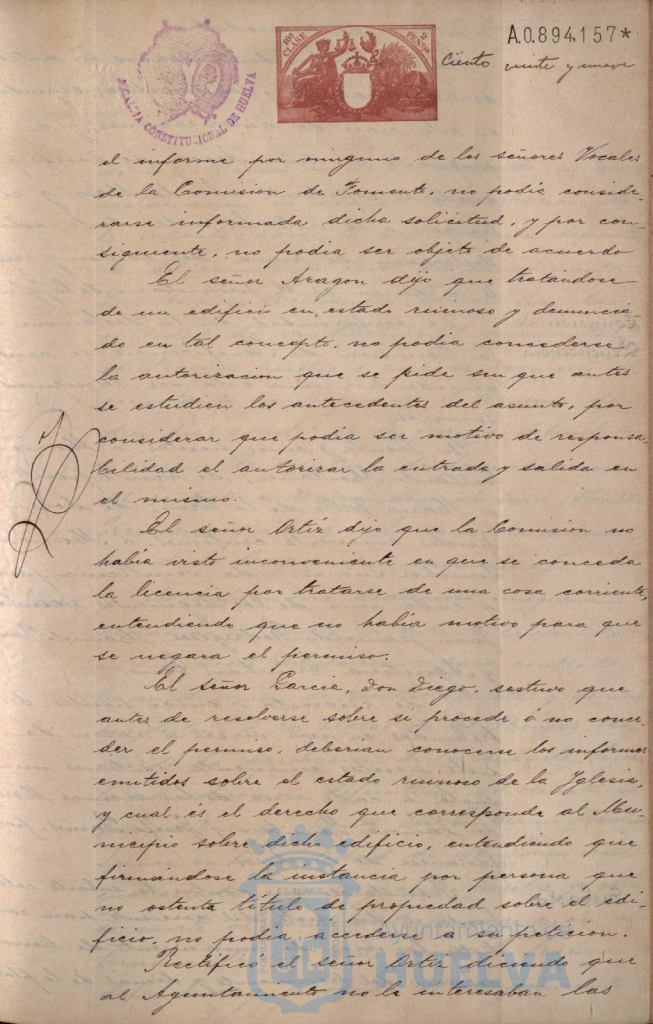 ALCALDIA CONSTITUCIONAL DE HUELVA
10ª CLASE
2 PESETAS
A.0.894,157*
Ciento veinte y nueve
el informe por ninguno de los señores Vocales
de la Comision de Fomento, no podía conside-
rarse informada dicha solicitud, y por con-
siguiente, no podia ser objeto de acuerdo
El señor Aragon dijo que tratándose
de un edificio en estado ruinoso y denuncia-
do en tal concepto, no podia concederse
la autorizacion que se pide sin que antes
se estudien los antecedentes del asunto, por
considerar que podia ser motivo de responsa-
bilidad el autorizar la entrada y salida en
el mismo.
El señor Ortíz dijo que la Comision no
había visto inconveniente en que se conceda
la licencia por tratarse de una cosa corriente,
entendiendo que no había motivo para que
se negara el permiso.
El señor Garcia, Don Diego, sostuvo que
antes de resolverse sobre si procede ó no conce-
der el permiso, deberian conocerse los informes
emitidos sobre el estado ruinoso de la Yglesia,
y cual és el derecho que corresponde al Mu-
nicipio sobre dicho edificio, entendiendo que
firmándose la instancia por persona que
no ostenta título de propiedad sobre el edi-
ficio, no podia accederse a su peticion.
Rectificó el señor Ortíz diciendo que
al Ayuntamiento no le interesaban las
Ayuntamiento de
HUELVA